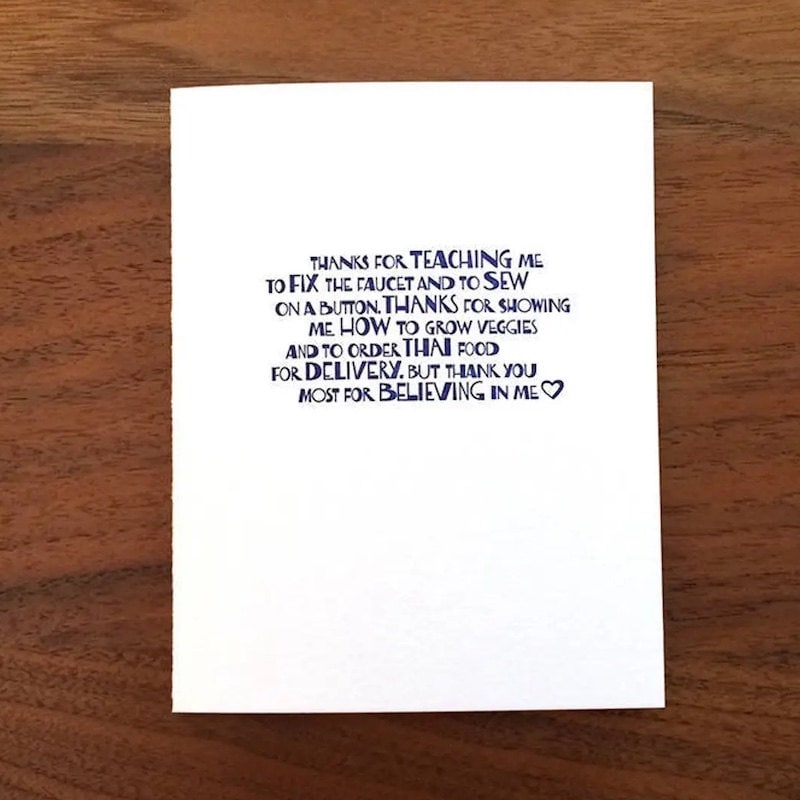 THANKS FOR TEACHING ME
TO FIX THE FAUCET AND TO SEW
ON A BUTTON. THANKS FOR SHOWING
ME HOW TO GROW VEGGIES
AND TO ORDER THAI FOOD
FOR DELIVERY. BUT THANK YOU
MOST FOR BELIEVING IN ME♡